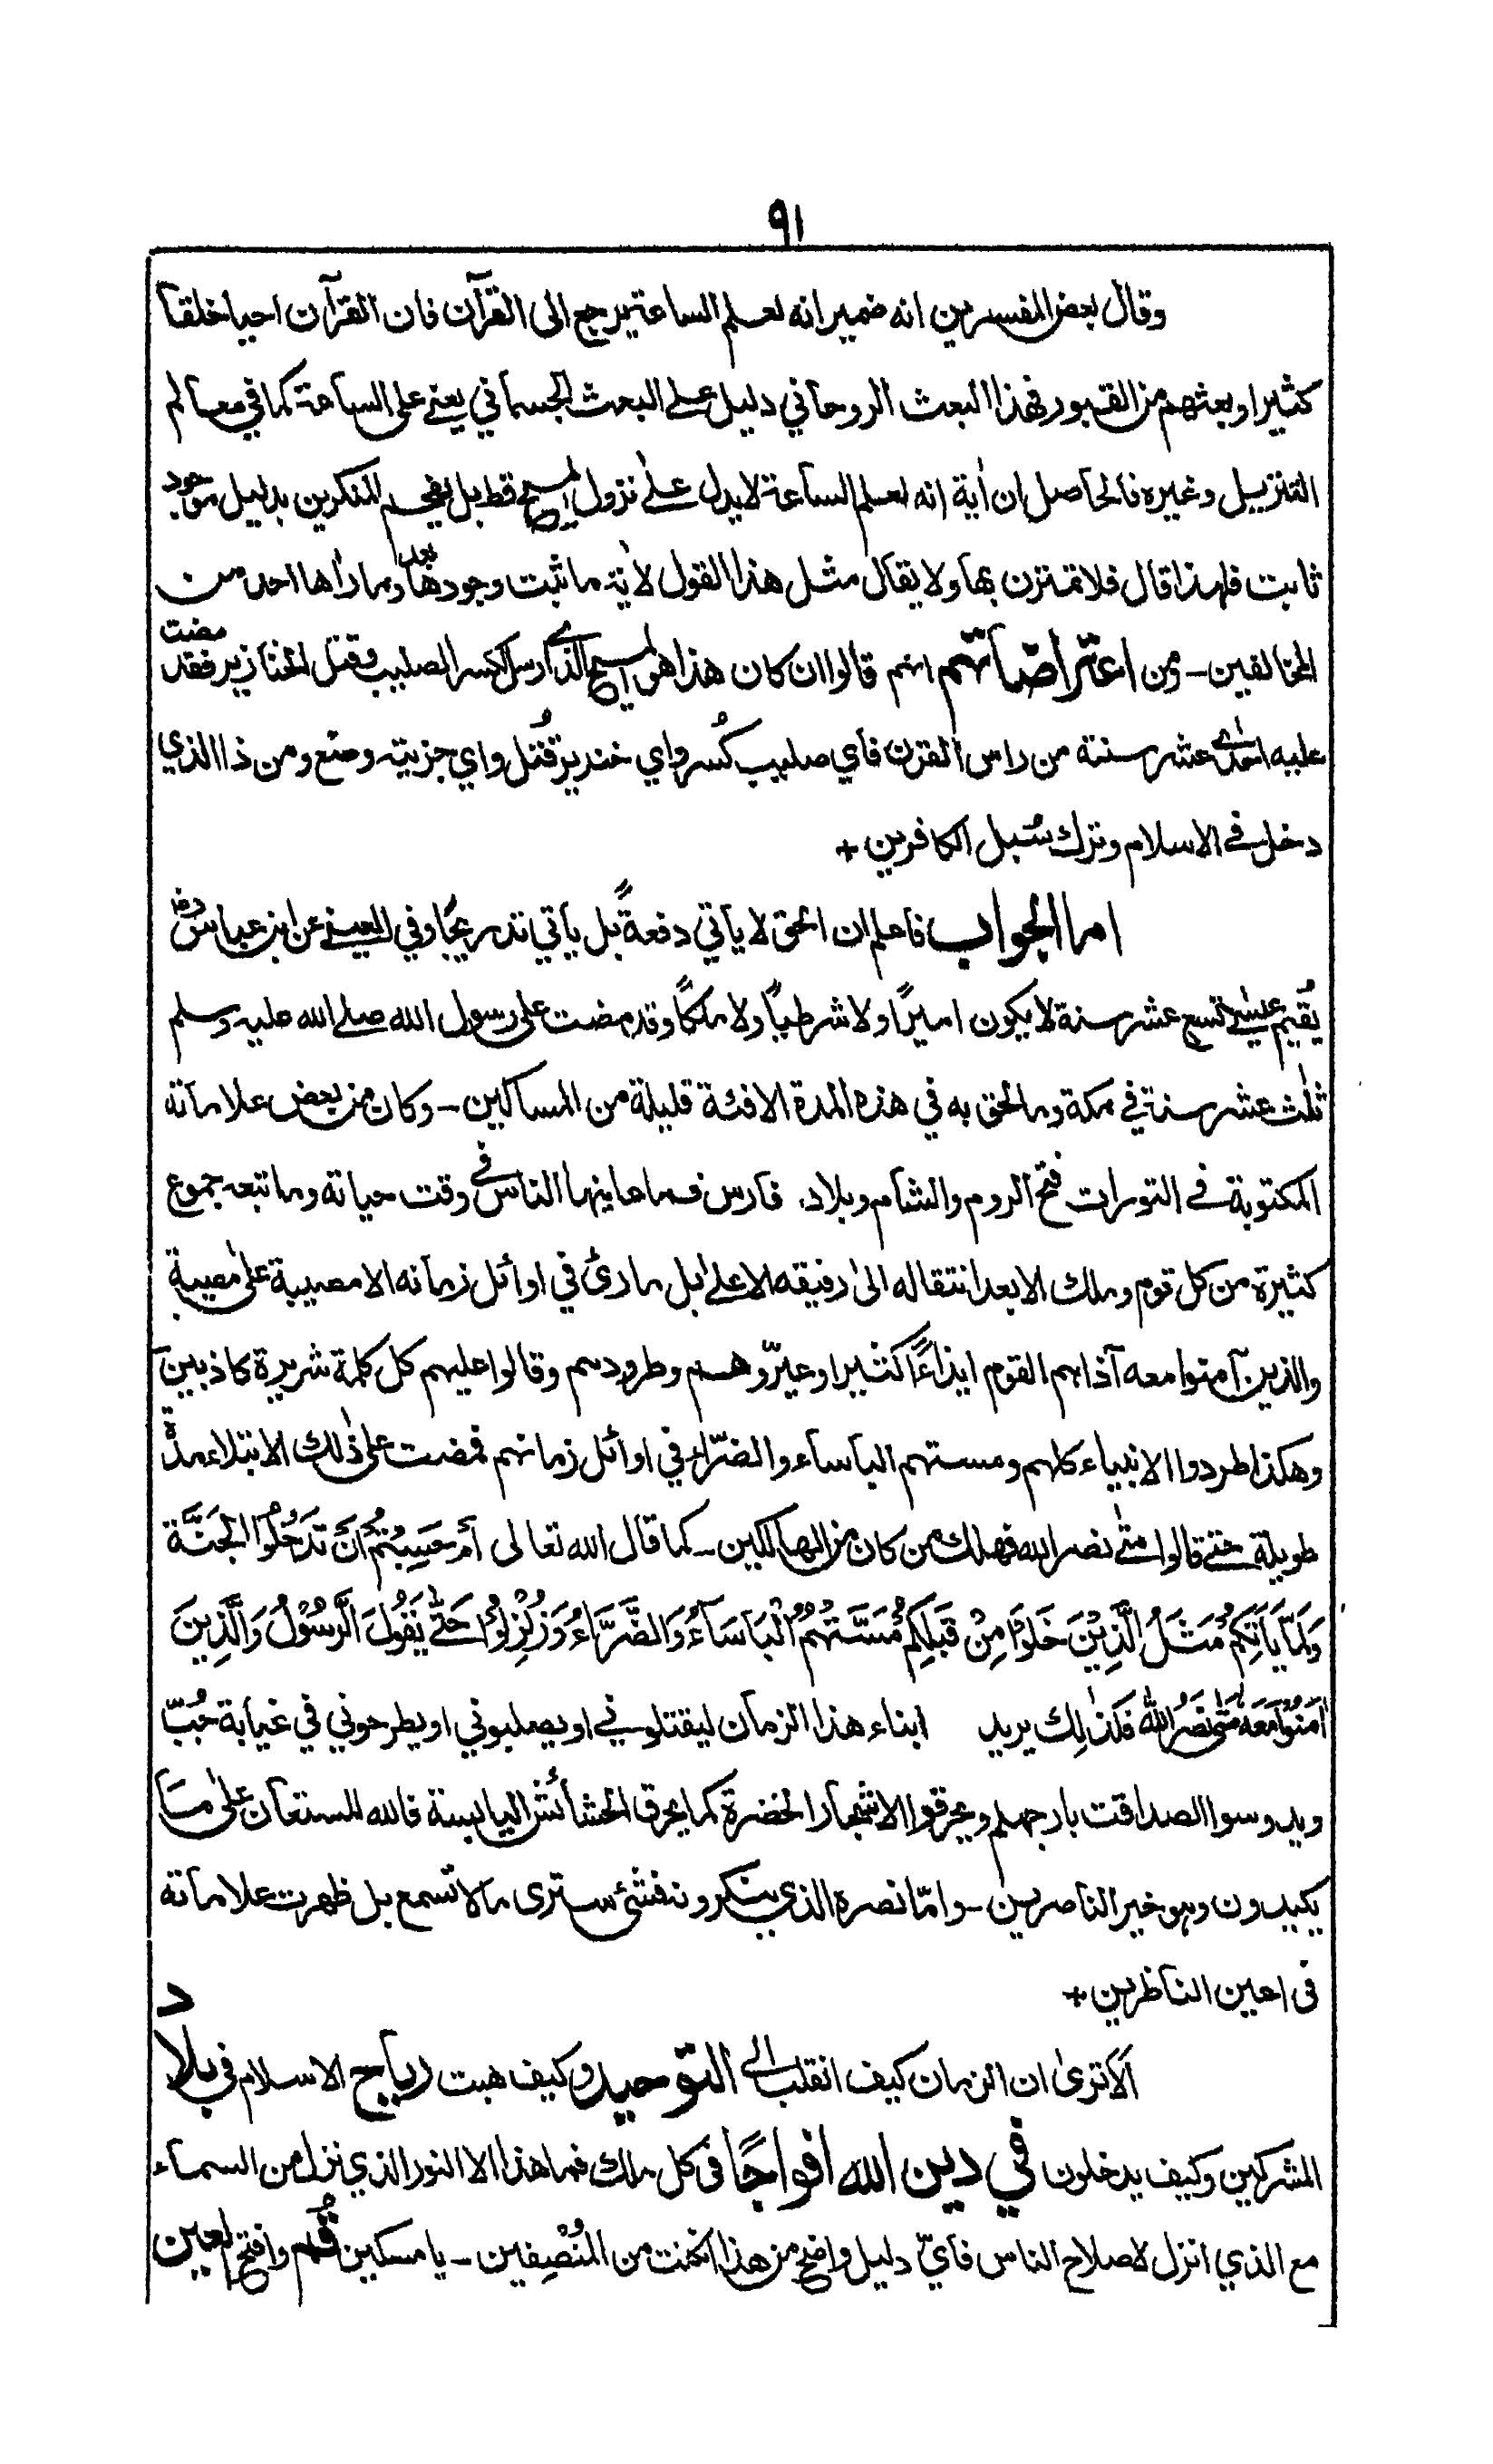 ٩١
وقال بعض المفسرين انه ضمير انه لعلم الساعة يرجع الى القرآن فان القرآن احيا خلقا
كثيرا وبعثهم من القبور فهذا البعث الروحاني دليل على البعث الجسماني يعني على الساعة كما في معالم
التنزيل وغيره فالحاصل ان اٰية انه لعلم الساعة لا يدل علىٰ نزول المسيح قط بل يفحم المنكرين بدليل موجود
ثابت فلهذا قال فلا تمترن بها ولا يقال مثل هذا القول لاٰية ما ثبت وجودها بعد وما راٰها احد من
المخالفين - ومن اعتراضاتهم انهم قالوا ان كان هذا هو المسيح الذي ارسل لكسر الصليب وقتل الخنازير فقد مضت
عليه احدى عشر سنة من راس القرن فاي صليب كُسر واي خنزير قُتل واي جزية وضع ومن ذا الذي
دخل في الاسلام وترك سُبل الكافرين +
اما الجواب فاعلم ان الحق لا ياتي دفعةً بل ياتي تدريجًا وفي العيني عن ابن عباس رض
يُقيم عيسىٰ تسع عشر سنة لا يكون اميرًا ولا شرطيًا ولا ملكًا وقد مضت على رسول الله صلے الله عليه وسلم
ثلٰث عشر سنة في مكة وما لحق به في هذه المدة الا فئة قليلة من المساكين - وكان من بعض علاماته
المكتوبة في التورات فتح الروم والشام وبلاد فارس فما عاينها الناس في وقت حياته وما تبعه جموع
كثيرة من كل قوم وملك الا بعد انتقاله الىٰ رفيقه الاعلےٰ بل ما رئ في اوائل زمانه الا مصيبة علىٰ مصيبة
والذين آمنوا معه آذاهم القوم ايذاءً كثيرا وعيّروهم وطردوهم وقالوا عليهم كل كلمة شريرة كاذبين
وهكذا طردوا الانبياء كلهم ومستهم الباساء والضرّاء في اوائل زمانهم فمضت على ذٰلك الابتلاء مدّة
طويلة حتے قالوا متےٰ نصر الله فهلك من كان من الهالكين - كما قال الله تعالى أَمْ حَسِبْتُمْ أَنْ تَدْخُلُوا الْجَنَّةَ
وَلَمَّا يَأْتِكُمْ مَثَلُ الَّذِيْنَ خَلَوْا مِنْ قَبْلِكُمْ مَسَّتْهُمُ الْبَأْسَآءُ وَالضَّرَّاءُ وَزُلْزِلُوْا حَتّٰى يَقُوْلَ الرَّسُوْلُ وَالَّذِيْنَ
اٰمَنُوْا مَعَهُ مَتٰى نَصْرُ اللّٰهِ فكذٰلِك يريد ابناء هذا الزمان ليقتلوني او يصلبوني او يطرحوني في غيابة جُبّ
ويدوسوا الصداقت بارجلهم ويحرقوا الاشجار الخضرة كما يحرق الحشائش اليابسة فالله المستعان علىٰ ما
يكيدون وهو خير الناصرين - وامّا نصره الذي ينكرونه فشئ سترى ما لا تسمع بل ظهرت علاماته
فى اعين الناظرين +
اَلا ترىٰ ان الزمان كيف انقلب الى التوحيد وكيف هبت رياح الاسلام في بلاد
المشركين وكيف يدخلون في دين الله افواجًا فى كل ملك فما هذا الا النور الذي نزل من السماء
مع الذي انزل لاصلاح الناس فأيّ دليل واضح من هذا ان كنت من المُنْصِفين - يا مسكين قُم وافتح العين